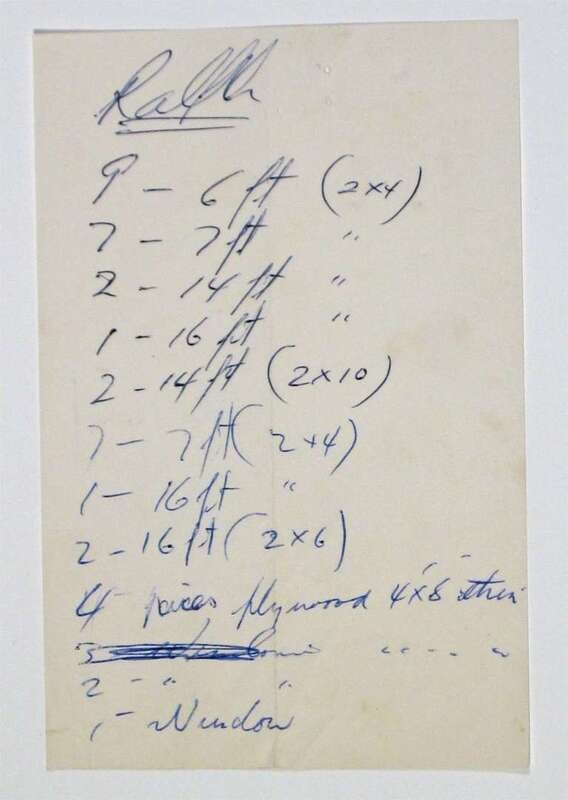 Ralph
9 - 6 ft (2x4)
7 - 7 ft "
2 - 14 ft "
1 - 16 ft "
2 - 14 ft (2x10)
7 - 7 ft (2x4)
1 - 16 ft "
2 - 16 ft (2x6)
4 pieces plywood 4'x8
2 - " "
1 - Window